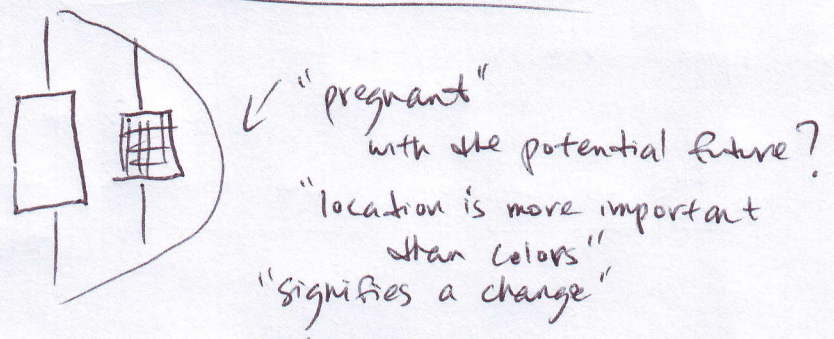 "pregnant"
with the potential future?
"location is more important
than colors"
"signifies a change"